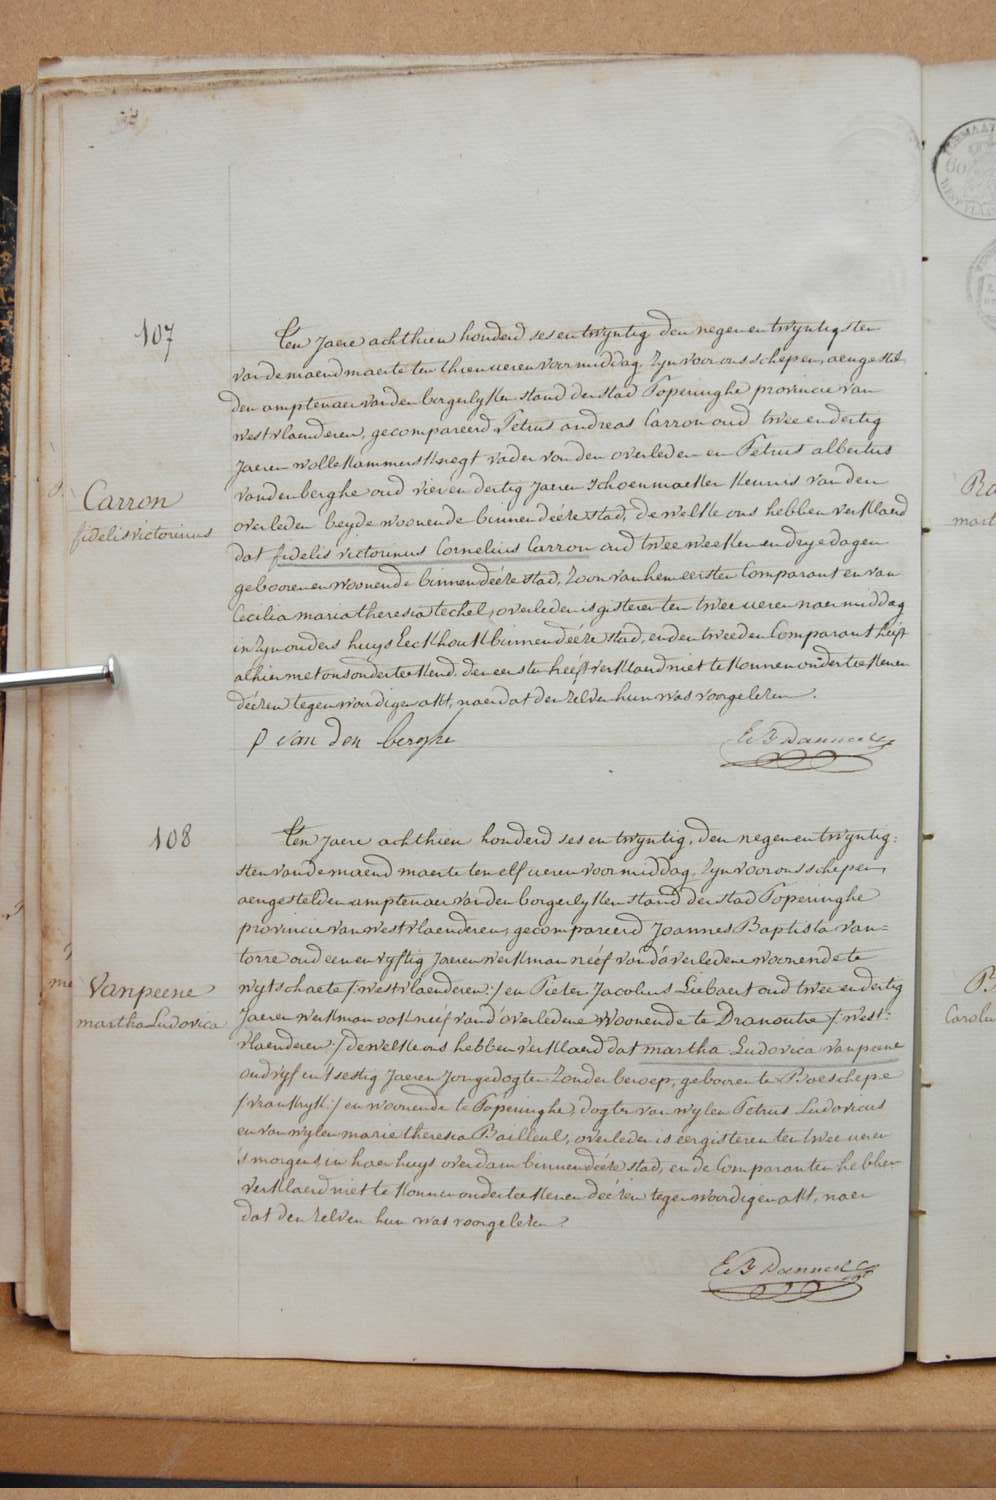 107
Ten Jaere achthien honderd ses en twyntig den negenentwyntigsten
van de maend maerte ten thien ueren voormiddag, zyn voor ons schepen, aengestel
den amptenaer van den borgerlyken stand der stad Poperinghe provincie van
westvlaenderen, gecompareerd Petrus andreas Carron oud twee en dertig
Jaeren wollekammers knegt vader van den overleden en Petrus albertus
vandenberghe oud vier en dertig Jaeren schoenmaeker kennis van den
Carron
fidelis victorinus
overleden beyde woonende binnen deéze stad, de welke ons hebben verklaerd
dat fidelis victorinus Cornelius Carron oud twee weeken en drye dagen
gebooren en woonende binnen deéze stad, zoon van hem eersten Comparant en van
Cecilia maria theresia techel, overleden is gisteren ten twee ueren naermiddag
in zyn ouders huys Eeckhout binnen deéze stad, en den tweeden Comparant heéft
alhier met ons onderteekend, den eersten heéft verklaerd niet te konnen onderteekenen
deézen tegenwoordigen akt, naer dat den zelven hun was voorgelezen.
p van den berghe
108
Ten Jaere achthien honderd ses en twyntig, den negenentwyntig:
sten van de maend maerte ten elf ueren voormiddag, zyn voor ons schepen,
aengestelden amptenaer van den borgerlyken stand der stad Poperinghe
provincie van westvlaenderen, gecompareerd Joannes Baptista van=
torre oud een en vyftig Jaeren werkman neéf van d'overledene woonende te
Vanpeene
martha Ludovica
wytschaete /:westvlaenderen:/ en Pieter Jacobus Liebaert oud twee en dertig
Jaeren werkman ook neéf van d'overledene woonende te Dranoutre /:west:
vlaenderen:/ de welke ons hebben verklaerd dat martha Ludovica vanpeene
oud vyf en tsestig Jaeren Jongedogter zonder beroep, gebooren te Boeschepe
/:vrankryk:/ en woonende te Poperinghe, dogter van wylen Petrus Ludovicus
en van wylen marie theresia Bailleul, overleden is eergisteren ten twee ueren
's morgens, in haer huys overdam binnen deéze stad, en de Comparanten hebben
verklaerd niet te konnen onderteekenen deézen tegenwoordigen akt, naer
dat den zelven hun was voorgelezen.